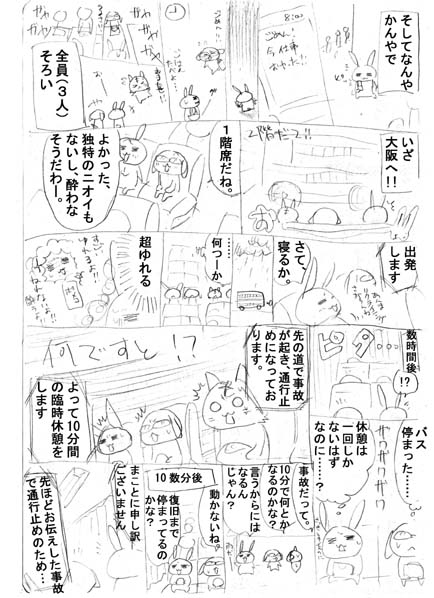 そしてなんや
かんやで
8:00
ごめん、
今仕事
おわった!!
全員（３人）
そろい
いざ
大阪へ!!
2階だて!!
１階席だね。
よかった、
独特のニオイも
ないし、酔わな
そうだわー。
出発
します
さて、
寝るか。
……
何つーか
超ゆれる
数時間後
!?
ピタ…
先の道で事故
が起き、通行止
めになってお
ります。
何ですと!?
よって10分間
の臨時休憩を
します
バス
停まった……
ガヤガヤガヤ
休憩は
一回しか
ないはず
なのに……？
事故だって。
10分で何とか
なるのかな？
言うからには
なるん
じゃん？
動かないね。
10 数分後
復旧まで
停まってるの
かな？
まことに申し訳
ございません
先ほどお伝えした事故
で通行止めのため…